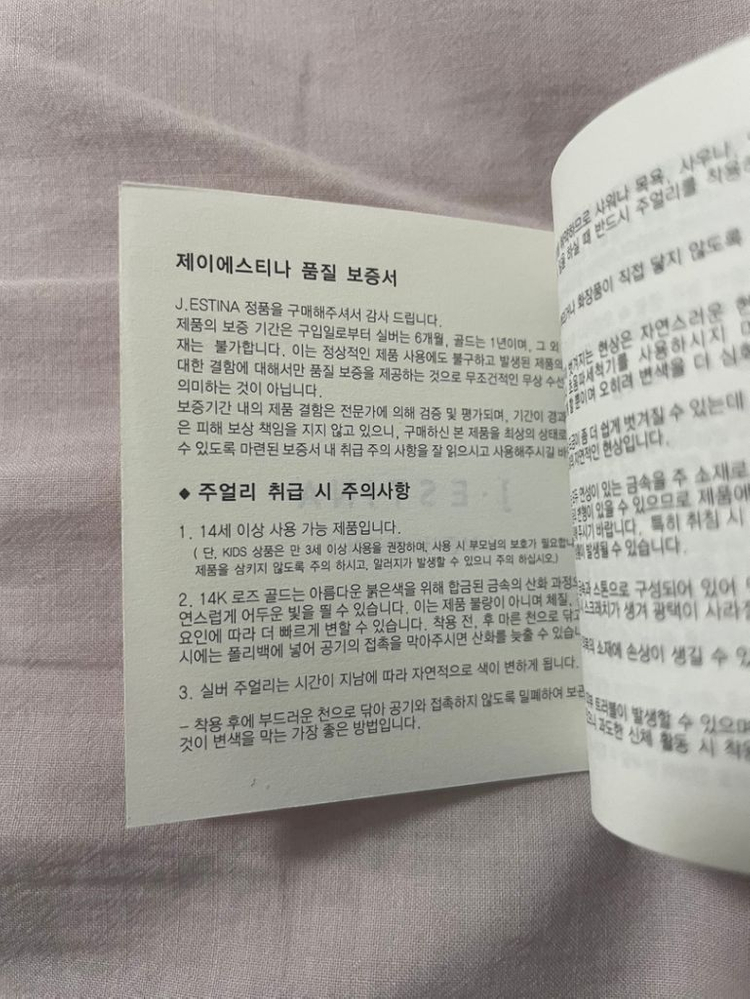 제이에스티나 품질 보증서
J.ESTINA 정품을 구매해주셔서 감사 드립니다.
제품의 보증 기간은 구입일로부터 실버는 6개월, 골드는 1년이며, 그 외
재는 불가합니다. 이는 정상적인 제품 사용에도 불구하고 발생된 제품의
대한 결함에 대해서만 품질 보증을 제공하는 것으로 무조건적인 무상 수선
의미하는 것이 아닙니다.
보증기간 내의 제품 결함은 전문가에 의해 검증 및 평가되며, 기간이 경과
은 피해 보상 책임을 지지 않고 있으니, 구매하신 본 제품을 최상의 상태로
수 있도록 마련된 보증서 내 취급 주의 사항을 잘 읽으시고 사용해주시길 바
◆ 주얼리 취급 시 주의사항
1. 14세 이상 사용 가능 제품입니다.
( 단, KIDS 상품은 만 3세 이상 사용을 권장하며, 사용 시 부모님의 보호가 필요합니
제품을 삼키지 않도록 주의 하시고, 알러지가 발생할 수 있으니 주의 하십시오.)
2. 14K 로즈 골드는 아름다운 붉은색을 위해 합금된 금속의 산화 과정
연스럽게 어두운 빛을 띌 수 있습니다. 이는 제품 불량이 아니며 체질,
요인에 따라 더 빠르게 변할 수 있습니다. 착용 전, 후 마른 천으로 닦고
시에는 폴리백에 넣어 공기의 접촉을 막아주시면 산화를 늦출 수 있습니
3. 실버 주얼리는 시간이 지남에 따라 자연적으로 색이 변하게 됩니다.
- 착용 후에 부드러운 천으로 닦아 공기와 접촉하지 않도록 밀폐하여 보관
것이 변색을 막는 가장 좋은 방법입니다.
샤워나 목욕, 사우나,
하실 때 반드시 주얼리를 착용
화장품이 직접 닿지 않도록
벗겨지는 현상은 자연스러운 현
초음파세척기를 사용하시지
뿐이며 오히려 변색을 더 심
좀 더 쉽게 벗겨질 수 있는데
자연적인 현상입니다.
연성이 있는 금속을 주 소재로
변형이 있을 수 있으므로 제품에
주시기 바랍니다. 특히 취침 시
발생될 수 있습니다.
스톤으로 구성되어 있어
스크래치가 생겨 광택이 사라
소재에 손상이 생길 수 있
트러블이 발생할 수 있으며
과도한 신체 활동 시 착용